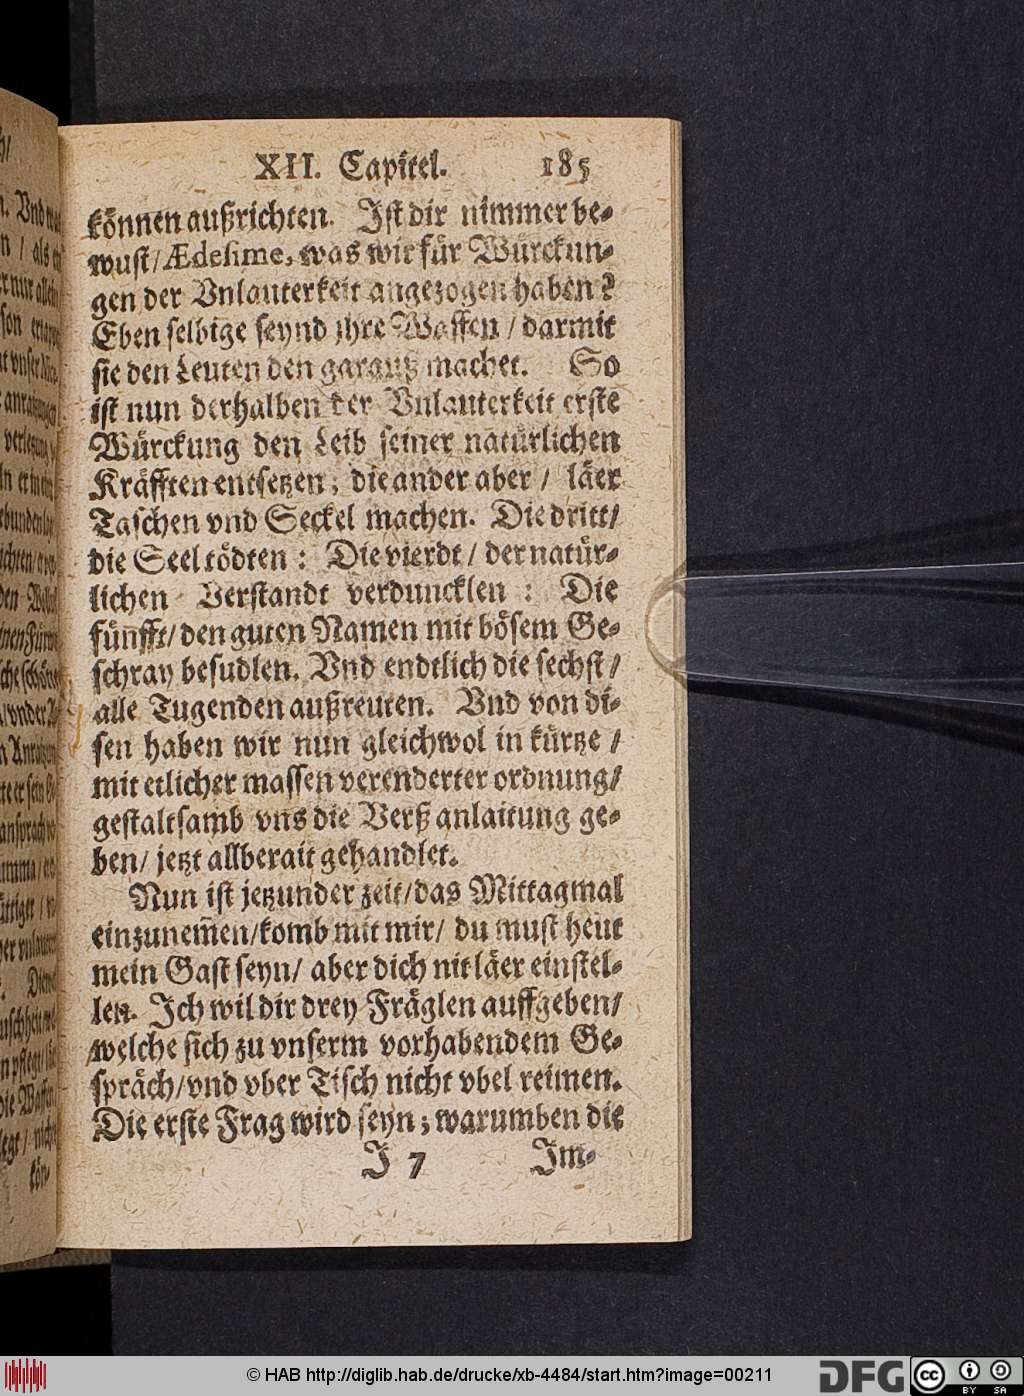 XII. Capitel. 185
können außrichten. Ist dir nimmer be-
wust/ Ædesime, was wir für Würckun-
gen der Vnlauterkeit angezogen haben?
Eben selbige seynd ihre Waffen / darmit
sie den Leuten den garauß machet. So
ist nun derhalben der Vnlauterkeit erste
Würckung den Leib seiner natürlichen
Kräfften entsetzen; die ander aber / läer
Taschen vnd Seckel machen. Die dritt/
die Seel tödten : Die vierdt / der natür-
lichen Verstandt verduncklen : Die
fünfft/ den guten Namen mit bösem Ge-
schray besudlen. Vnd endtlich die sechst /
alle Tugenden außreuten. Vnd von di-
sen haben wir nun gleichwol in kürtze /
mit etlicher massen verenderter ordnung/
gestaltsamb vns die Verß anlaitung ge-
ben/ jetzt allberait gehandlet.
Nun ist jetzunder zeit/das Mittagmal
einzunem̃en/komb mit mir/ du must heut
mein Gast seyn/ aber dich nit läer einstel-
len. Ich wil dir drey Fräglen auffgeben/
welche sich zu vnserm vorhabendem Ge-
spräch/vnd vber Tisch nicht vbel reimen.
Die erste Frag wird seyn; warumben die
J 7 Im-
© HAB http://diglib.hab.de/drucke/xb-4484/start.htm?image=00211
DFG
cc
BY SA